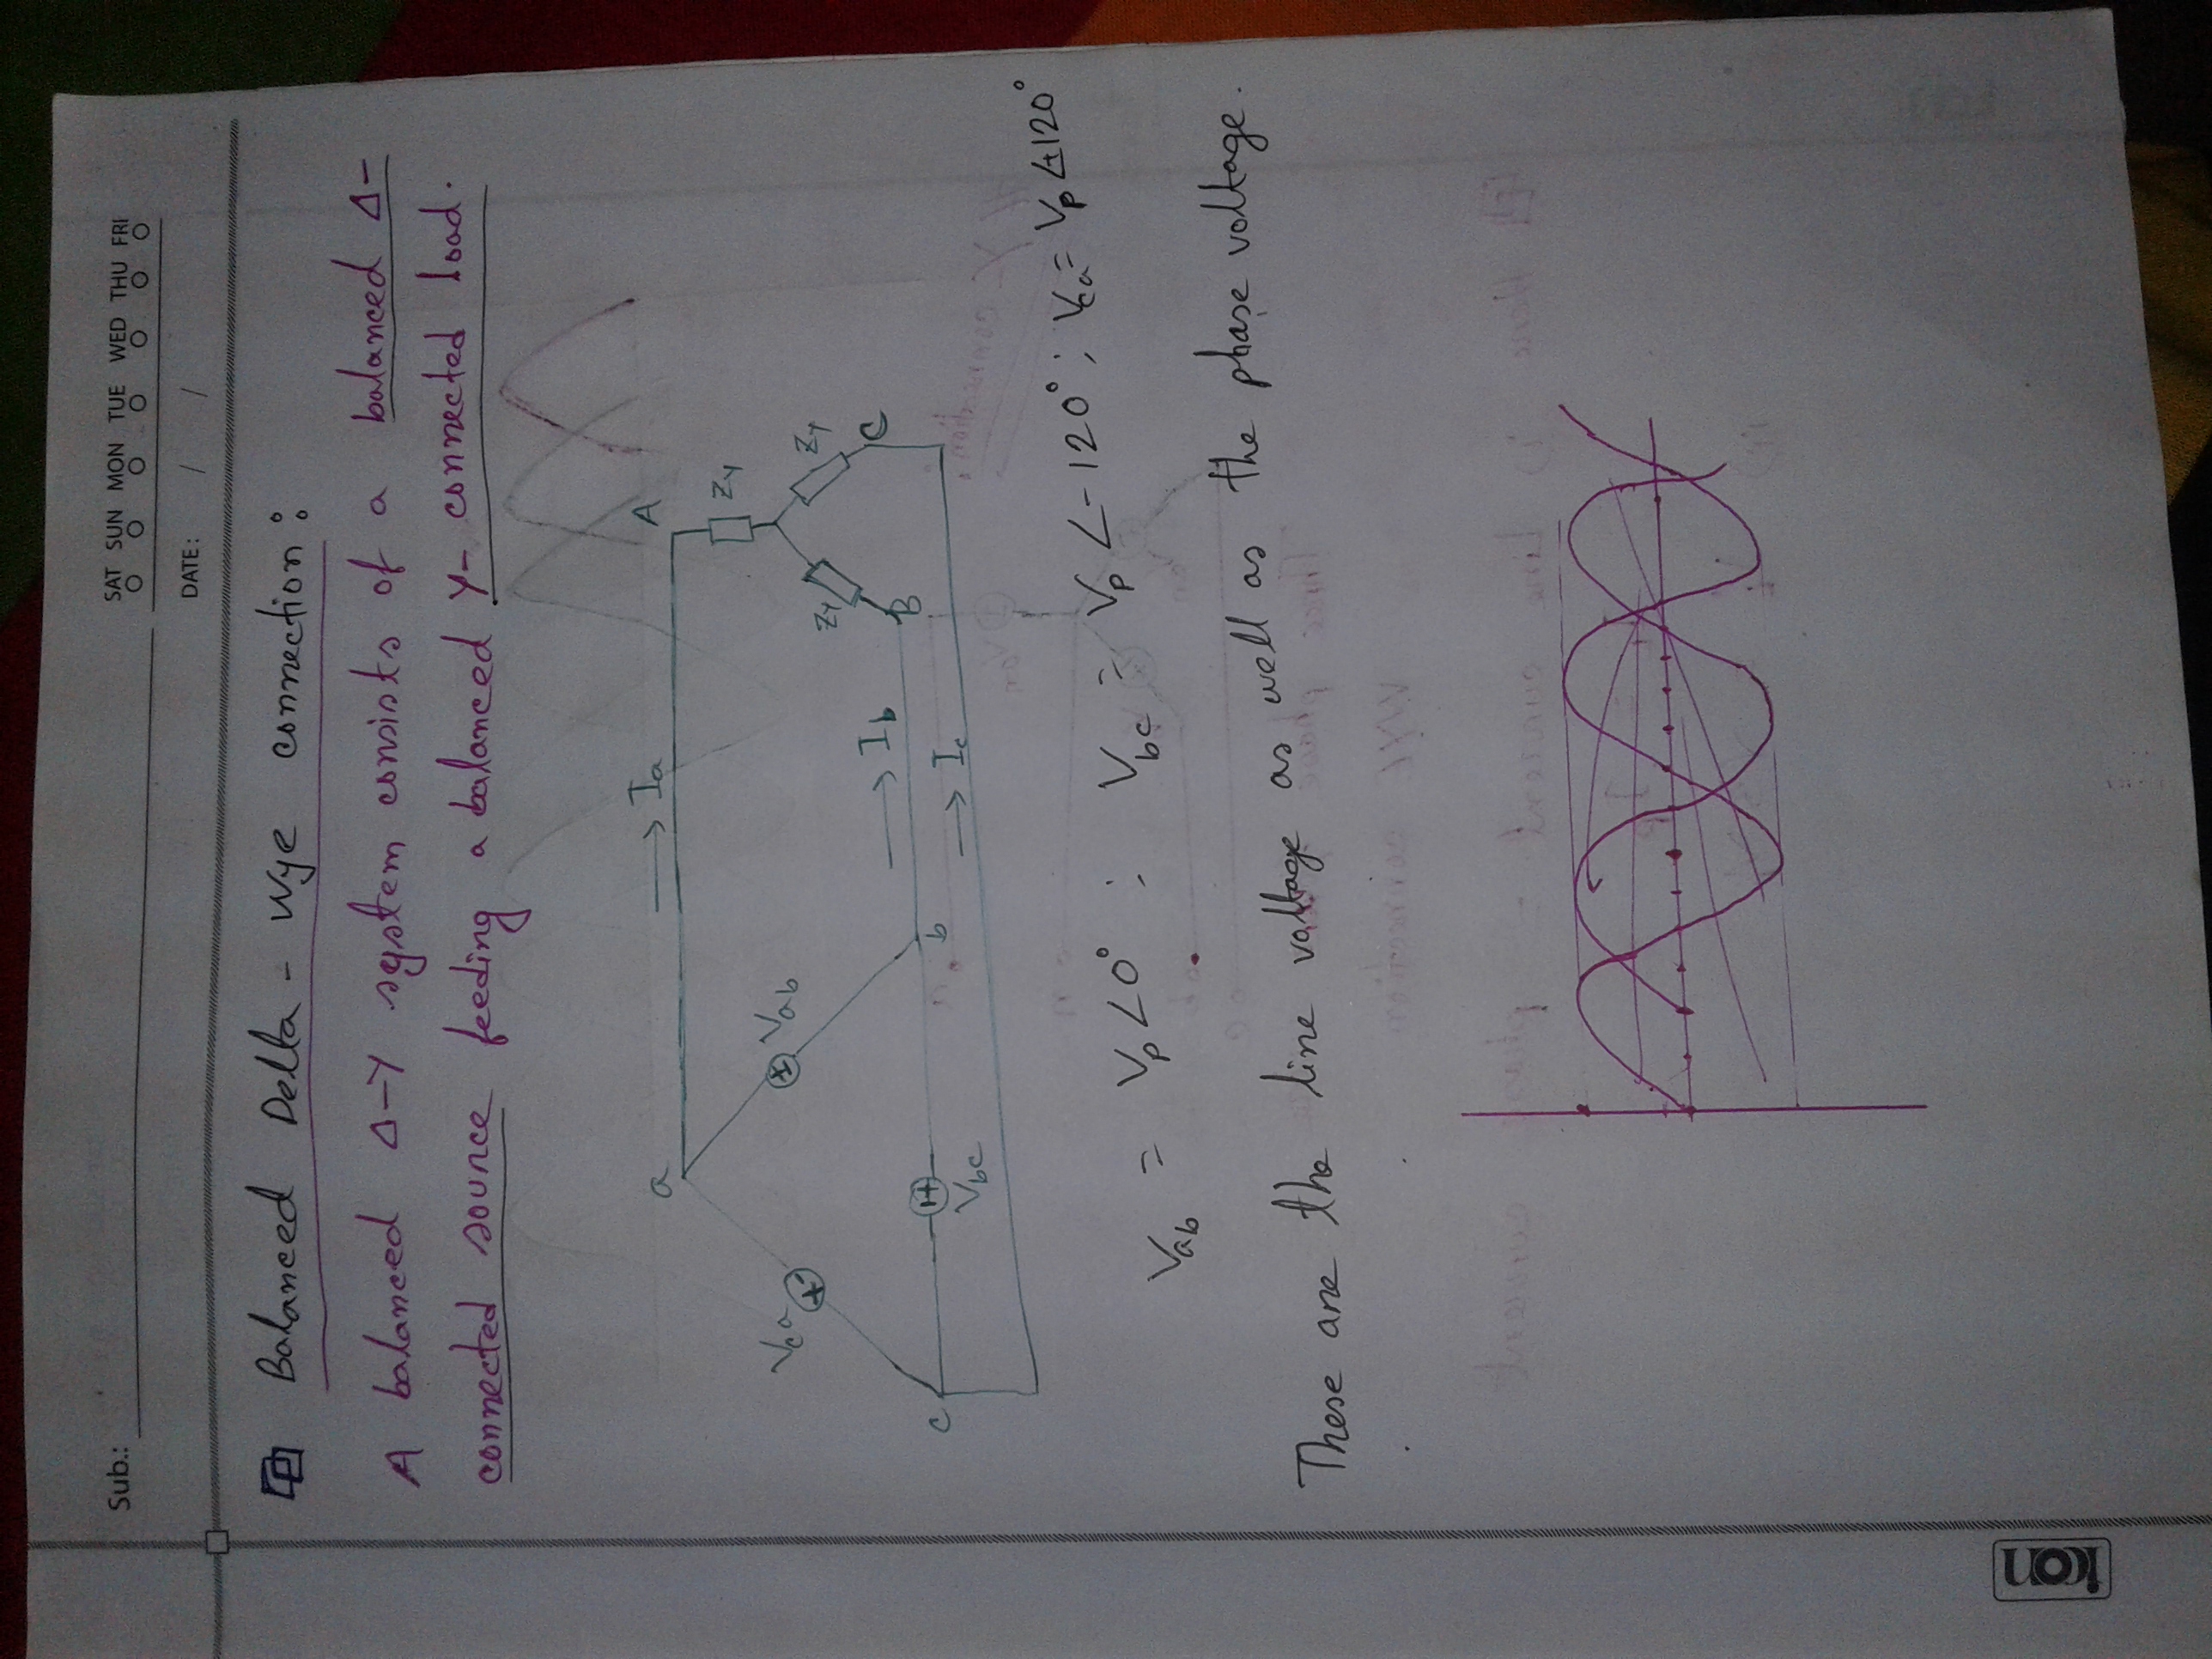 Sub.:
SAT SUN MON TUE WED THU FRI
DATE: / /
Balanced Delta - Wye connection:
A balanced Δ-Y system consists of a balanced Δ-
connected source feeding a balanced Y- connected load.
a Ia A
Vca Vab ZY
ZY ZY
Ib C
c b B
Vbc Ic
Vab = Vp∠0° ; Vbc = Vp∠-120° ; Vca = Vp∠+120°
These are the line voltage as well as the phase voltage.
icon